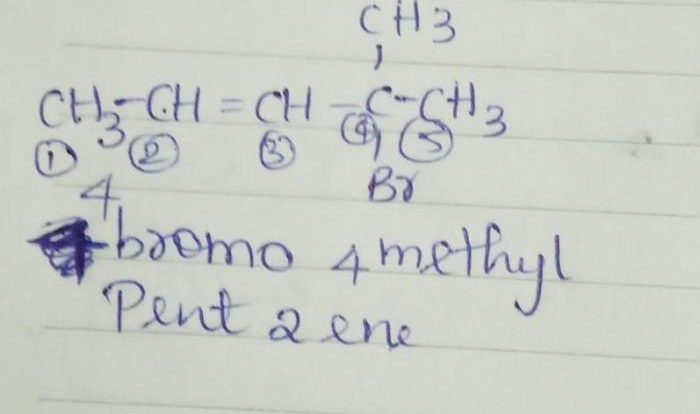 CH3
CH3-CH=CH-C-CH3
① ② ③ ④ ⑤
Br
4
bromo 4 methyl
Pent 2 ene